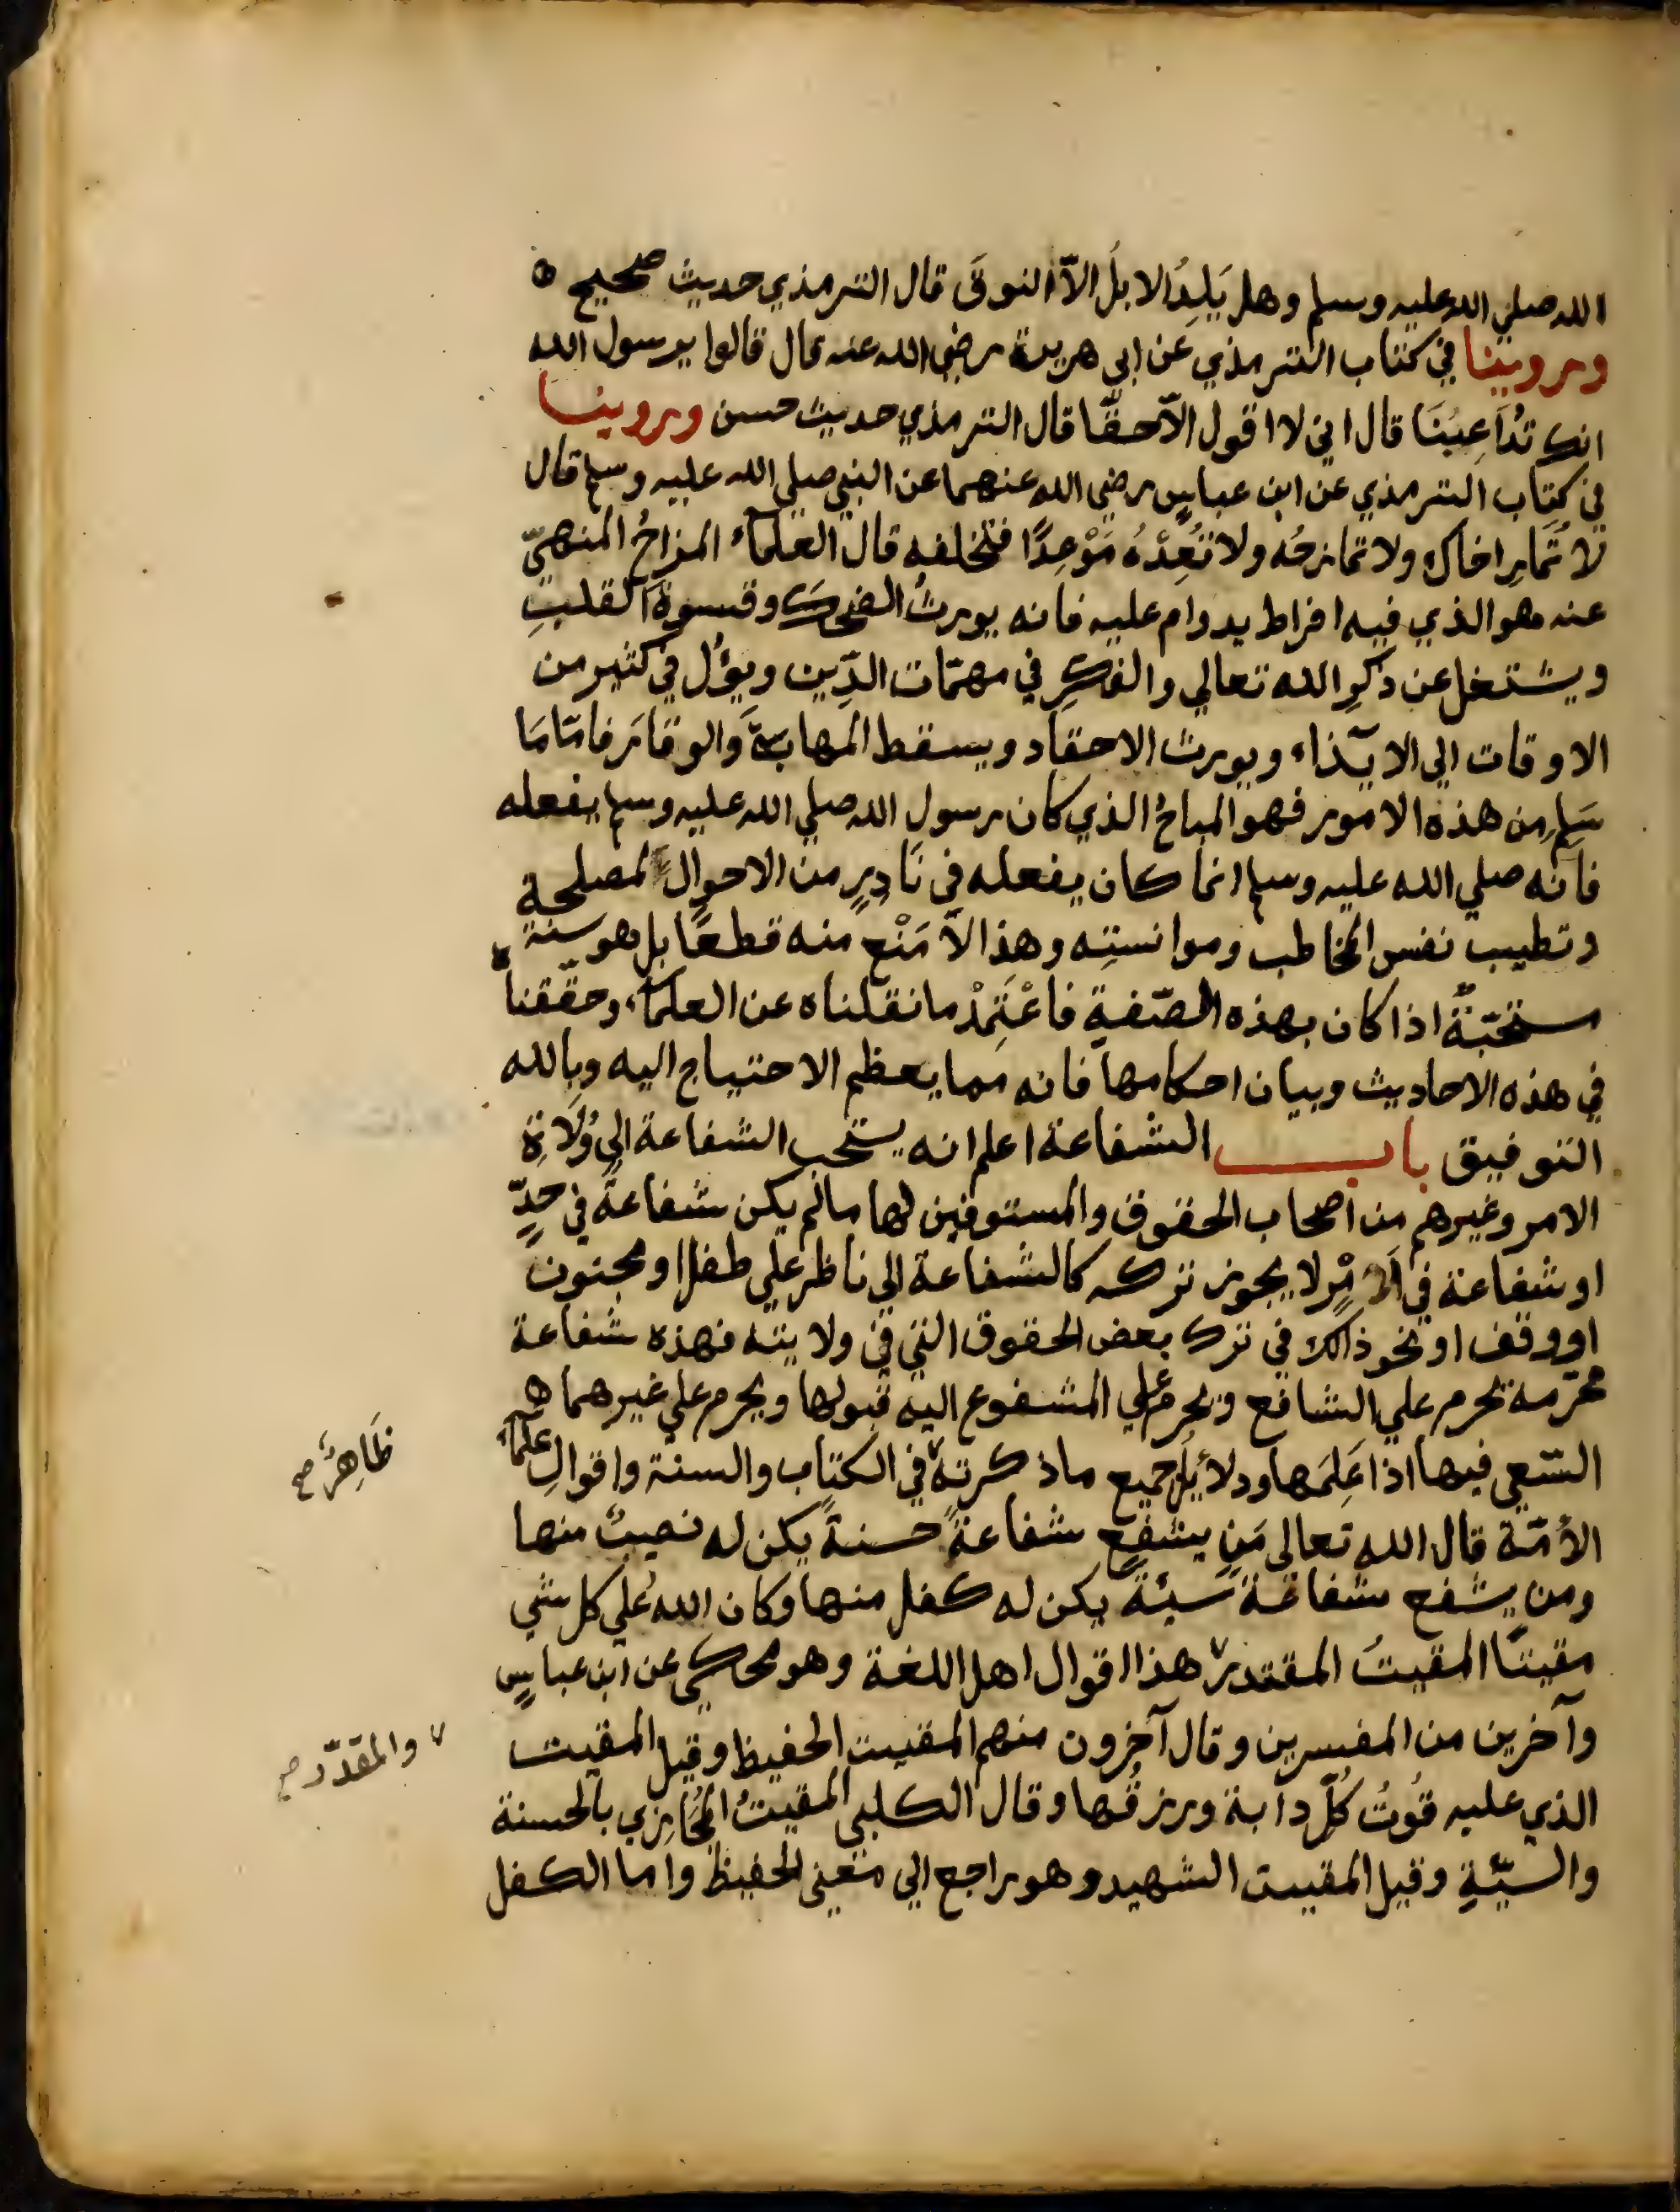 الله صلي الله عليه وسلم وهل يَلِدُ الابلُ الاّ النوقَ قال الترمذي حديث صحيح ه
وروينا في كتاب الترمذي عن ابي هريرة رضي الله عنه قال قالوا يرسول الله
انك تُدَاعِبُنَا قال اني لا اقول الاّ حقّا قال الترمذي حديث حسن وروينا
في كتاب الترمذي عن ابن عباسٍ رضي الله عنهما عن النبي صلي الله عليه وسلم قال
لا تُمَارِ اخاك ولا تمازحُه ولا تَعِدْهُ مَوْعِدًا فتخلفه قال العلماء المزاحُ المنهيّ
عنه هو الذي فيه افراط يدوام عليه فانه يورثُ الضحكَ وقسوةَ القلبِ
ويشتغل عن ذكرِ الله تعالي والفكرِ في مهمّات الدِّين ويؤل في كثير من
الاوقات الي الايذاء ويورث الاحقاد ويسقط المهابةَ والوقارَ فامّا مَا
سَلِمَ من هذه الامور فهو المباحُ الذي كان رسول الله صلي الله عليه وسلم يفعله
فانه صلي الله عليه وسلم انما كان يفعله في نَادِرٍ من الاحوال لمصلحة
وتطييب نفس المخاطب وموانستِه وهذا لا مَنْع منه قطعًا بل هو سنة
مستحبّةٌ اذا كان بهذه الصّفةِ فاعْتَمِدْ ما نقلناه عن العلماء وحقّقناه
في هذه الاحاديث وبيان احكامها فانه مما يعظم الاحتياج اليه وبالله
التوفيق باب الشفاعة اعلم انه يستحب الشفاعة الي وُلَاةِ
الامر وغيرهم من اصحاب الحقوق والمستوفين لها ما لم يكن شفاعةً في حدٍّ
او شفاعة في امْرٍ لا يجوز تركه كالشفاعة الي ناظر علي طفل او مجنون
او وقف او نحو ذالك في ترك بعض الحقوق التي في ولايته فهذه شفاعة
محرّمة يحرم علي الشافع ويحرم علي المشفوع اليه قبولها ويحرم علي غيرهما هم
السّعي فيها اذا عَلِمَها ودلائل جميع ما ذكرته في الكتاب والسنة واقوالِ علماء
الأمّة قال الله تعالي مَن يشفع شفاعةً حسنةً يكن له نصيبٌ منها
ومن يشفع شفاعةً سيئةً يكن له كفل منها وكان الله علي كل شي
مقيتًا المقيتُ المقتدر ٧ هذا اقوال اهل اللغة وهو محكي عن ابن عباسٍ
وآخرين من المفسرين وقال آخرون منهم المقيت الحفيظ وقيل المقيت
الذي عليه قُوتُ كُلّ دابة ورزقُها وقال الكلبي المقيتُ المُجَازي بالحسنة
والسيّئةِ وقيل المقيت الشهيد وهو راجع الي معني الحفيظ واما الكفل
ظَاهِرٌ صح
٧ والمقدّر صح